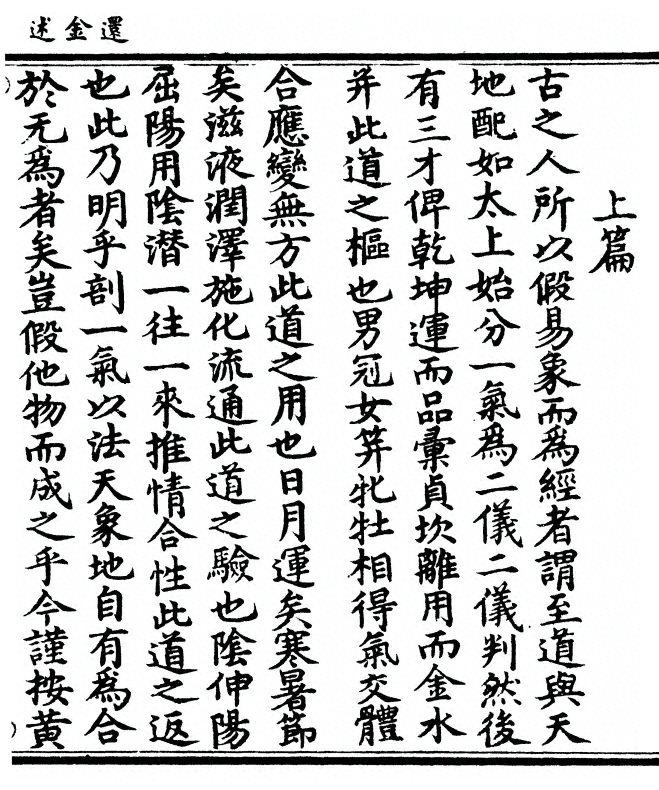 還金述
上篇
古之人所以假易象而為經者謂至道與天
地配如太上始分一氣為二儀二儀判然後
有三才俾乾坤運而品彙貞坎離用而金水
并此道之樞也男冠女笄牝牡相得氣交體
合應變無方此道之用也日月運矣寒暑節
矣滋液潤澤施化流通此道之驗也陰伸陽
屈陽用陰潛一往一來推情合性此道之返
也此乃明乎剖一氣以法天象地自有為合
於无為者矣豈假他物而成之乎今謹按黃